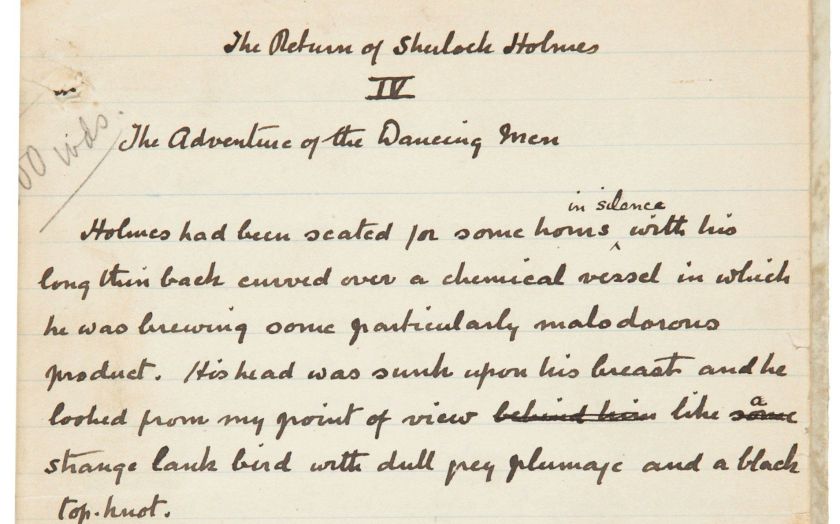 The Return of Sherlock Holmes
IV
00 wds.
The Adventure of the Dancing Men
Holmes had been seated for some hours in silence with his
long thin back curved over a chemical vessel in which
he was brewing some particularly malodorous
product. His head was sunk upon his breast and he
looked from my point of view behind him like some a
strange lank bird with dull grey plumage and a black
top-knot.